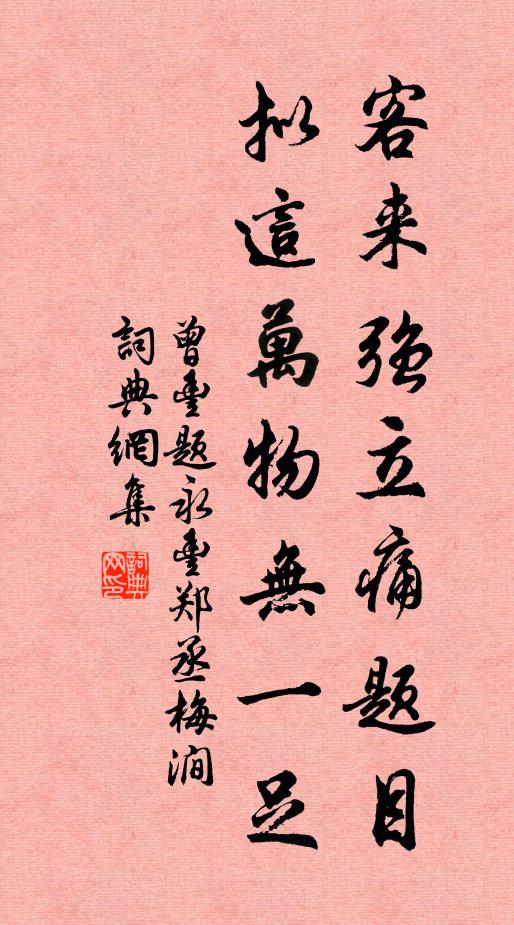 客来强立痛题目
拟這萬物無一足
曾豊题永豊郑丞梅澗
詞典網集
詞典网印